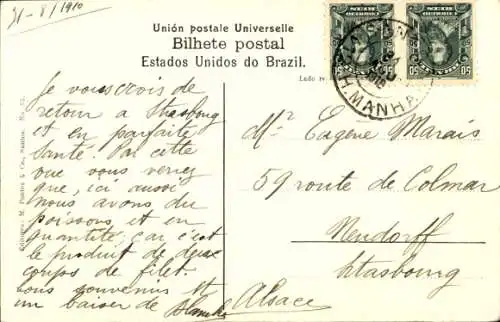 31-8/1910
Unión postale Universelle
Bilhete postal
Estados Unidos do Brazil.
Lado re
Je vous crois de
retour a Strasbourg
et en parfaite
santé. Par cette
vue vous verrez
que, ici aussi
nous avons du
poissons et en
quantité, car c'est
le produit de deux
coups de filet.
Bons souvenirs et
un baiser de Blanche
Mr Eugène Marais
59 route de Colmar
Neudorff
Strasbourg
Alsace
MANHÃ
50
50